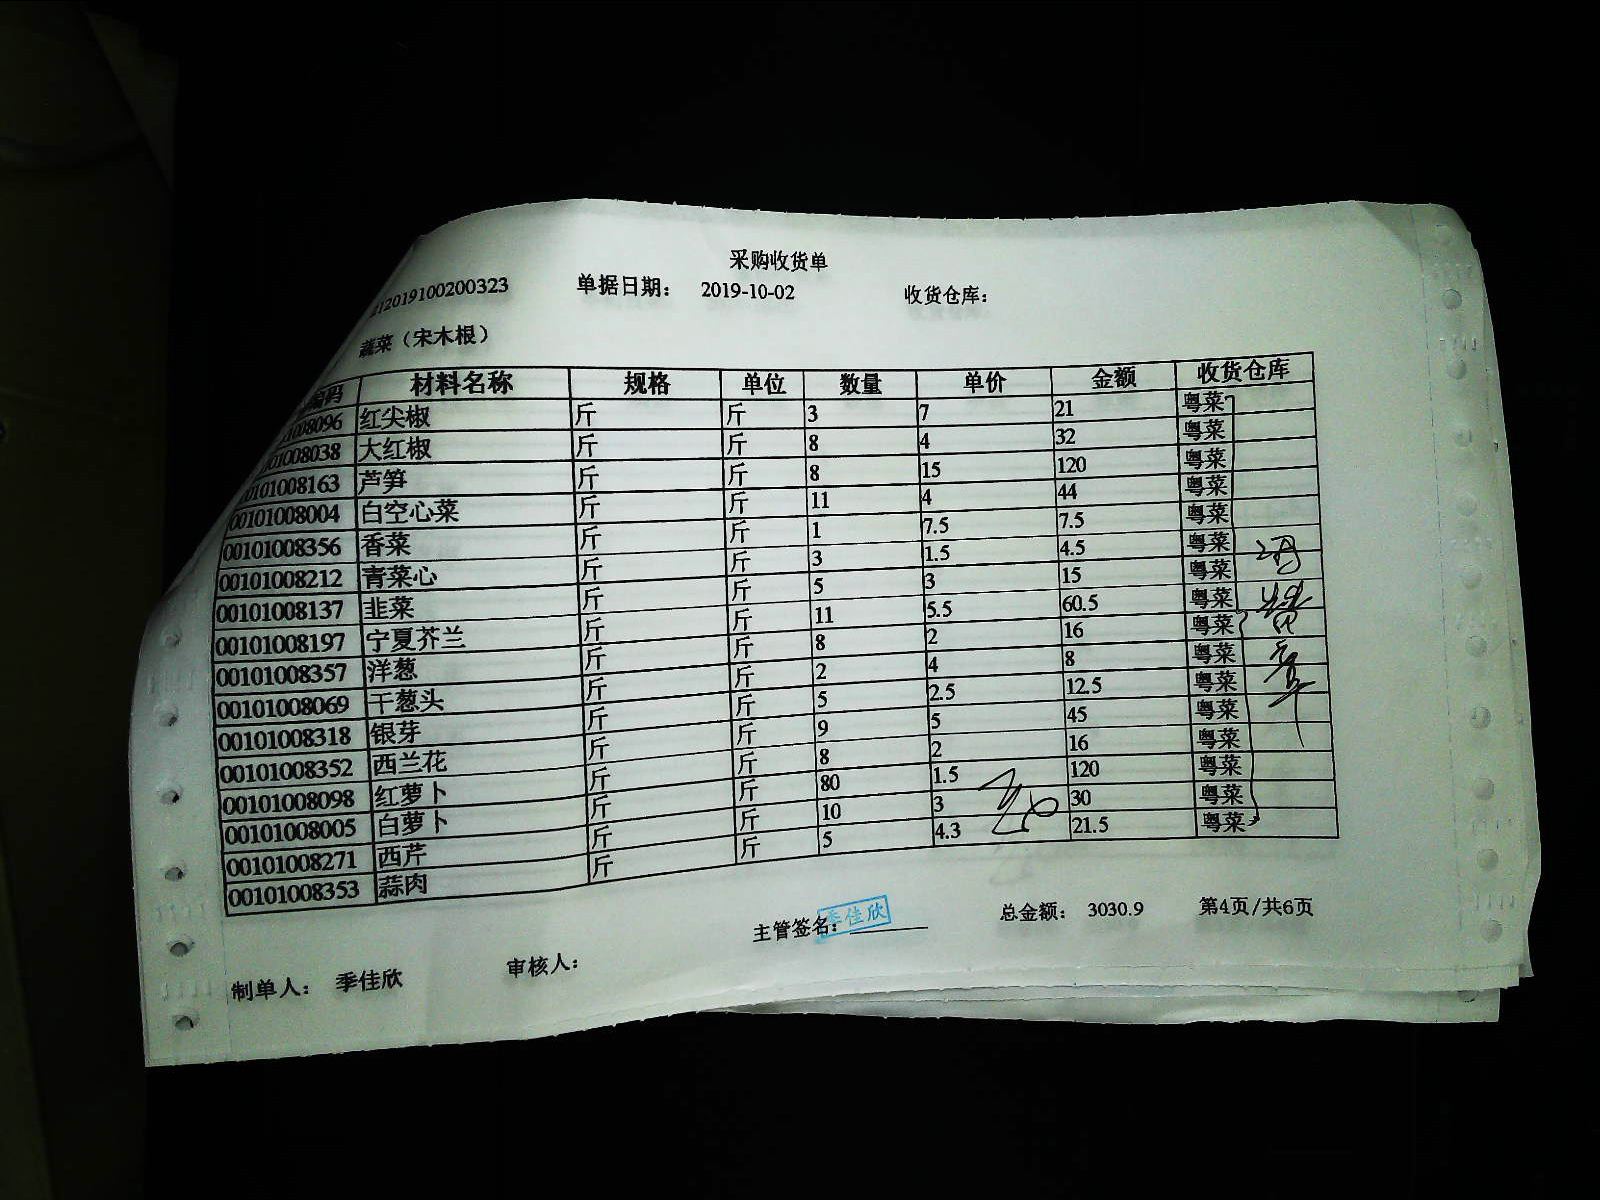 采购收货单
12019100200323 单据日期： 2019-10-02 收货仓库：
蔬菜（宋木根）
编码 材料名称 规格 单位 数量 单价 金额 收货仓库
1008096 红尖椒 斤 斤 3 7 21 粤菜
01008038 大红椒 斤 斤 8 4 32 粤菜
0101008163 芦笋 斤 斤 8 15 120 粤菜
00101008004 白空心菜 斤 斤 11 4 44 粤菜
00101008356 香菜 斤 斤 1 7.5 7.5 粤菜
00101008212 青菜心 斤 斤 3 1.5 4.5 粤菜
00101008137 韭菜 斤 斤 5 3 15 粤菜
00101008197 宁夏芥兰 斤 斤 11 5.5 60.5 粤菜
00101008357 洋葱 斤 斤 8 2 16 粤菜
00101008069 干葱头 斤 斤 2 4 8 粤菜
00101008318 银芽 斤 斤 5 2.5 12.5 粤菜
00101008352 西兰花 斤 斤 9 5 45 粤菜
00101008098 红萝卜 斤 斤 8 2 16 粤菜
00101008005 白萝卜 斤 斤 80 1.5 120 粤菜
00101008271 西芹 斤 斤 10 3 30 粤菜
00101008353 蒜肉 斤 斤 5 4.3 21.5 粤菜
主管签名： 季佳欣 总金额： 3030.9 第4页/共6页
制单人： 季佳欣 审核人：